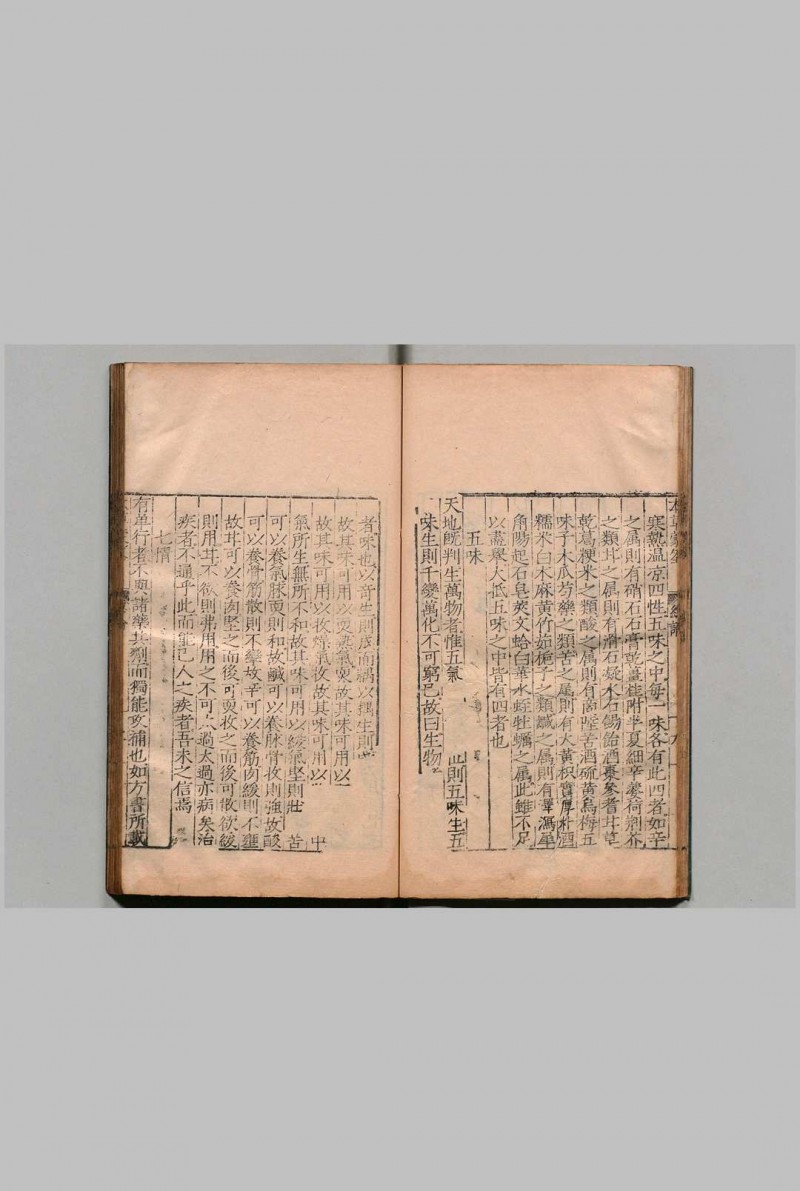 寒熱温凉四性五味之中每一味各有此四者如辛
之属則有硝石石膏乾薑桂附半夏細辛薄荷荆芥
之類甘之属則有滑石凝水石餳飴酒棗參耆甘草
乾葛粳米之類酸之属則有啇陸苦酒硫黄烏梅五
味子木瓜芍藥之類苦之属則有大黄枳實厚朴酒
糯米白木麻黄竹茹梔子之類鹹之属則有澤瀉犀
角陽起石皂莢文蛤白華水蛭牡蠣之属此雖不足
以盡舉大抵五味之中皆有四者也
五味
天地既判生萬物者惟五氣 則五味生五
味生則千變萬化不可窮已故曰生物
者味也以竒生則成而耦以耦生則
故其味可用以耎 氣耎故其味可用以
故其味可用以收燥氣收故其味可用以 中
氣所生無所不和故其味可用以緩氣堅則壯 苦
可以養氣脉耎則和故鹹可以養脉骨收則強故酸
可以養骨筋散則不攣故辛可以養筋肉緩則不壅
故甘可以養肉堅之而後可耎收之而後可散欲緩
則用甘不欲則弗用用之不可 過太過亦病矣治
疾者不通乎此而能已人之疾者吾未之信焉
七情
有单行者不與諸藥共劑而獨能攻補也如方書所載